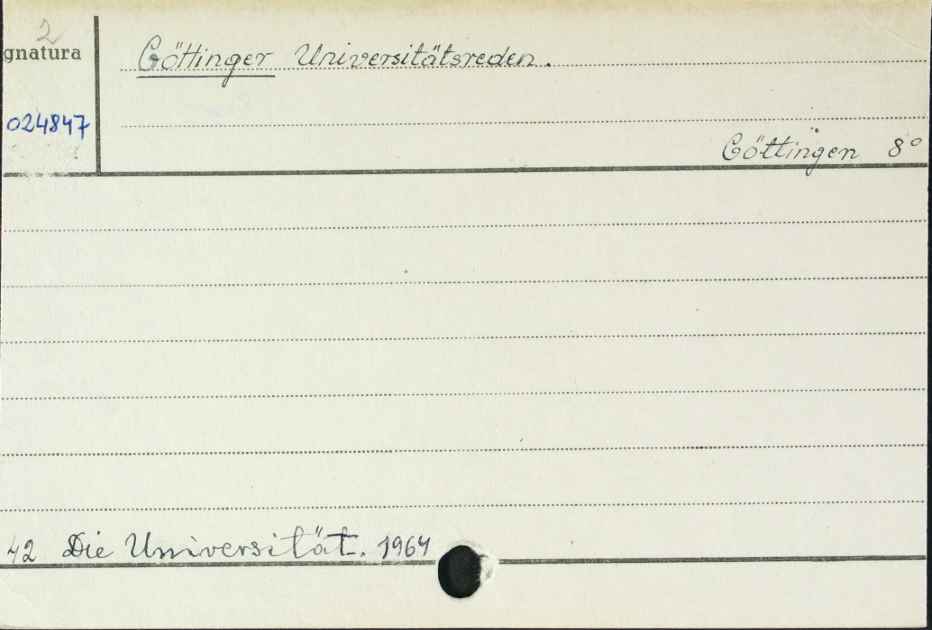 2
gnatura
Göttinger Universitätsreden.
024847
Göttingen 8°
42 Die Universität. 1964